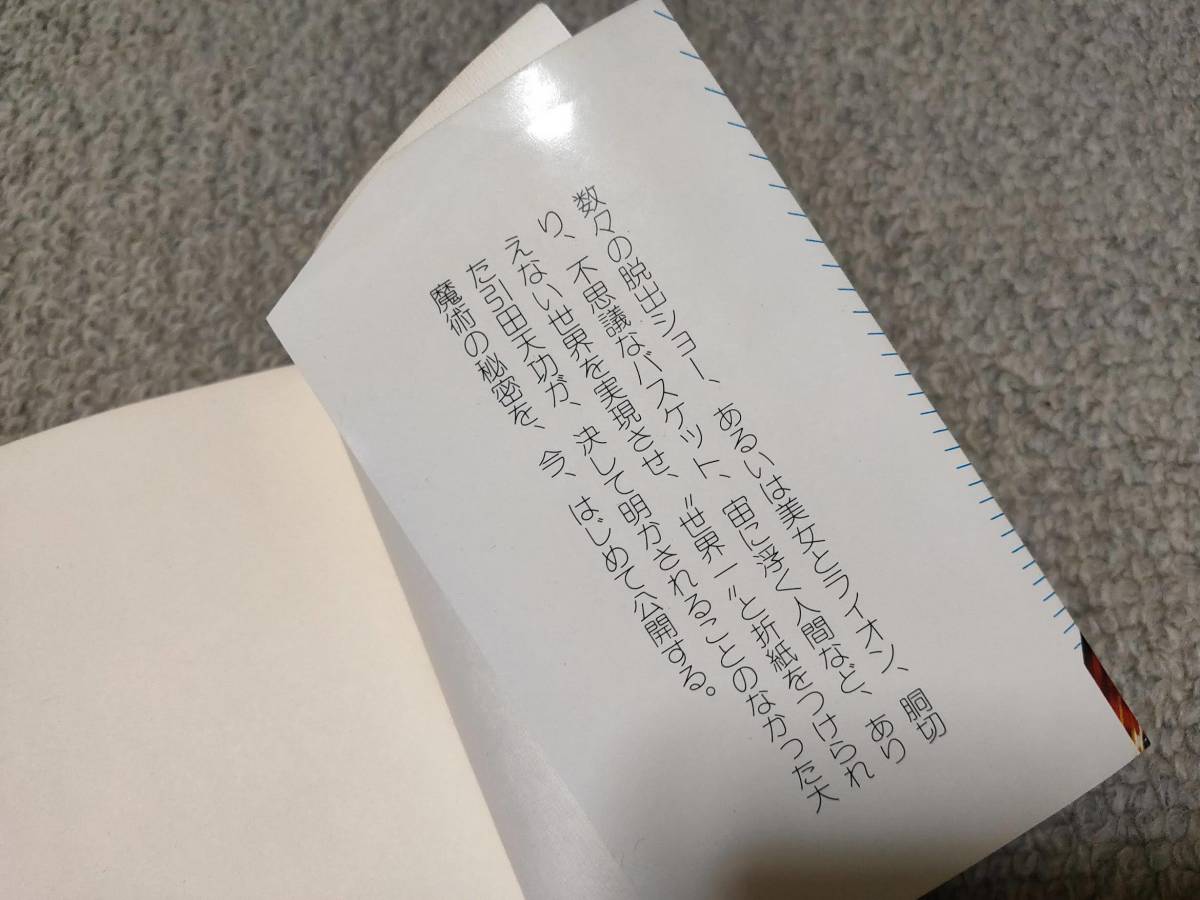 数々の脱出ショー、あるいは美女とライオン、胴切
り、不思議なバスケット、宙に浮く人間など、あり
えない世界を実現させ、〝世界一〟と折紙をつけられ
た引田天功が、決して明かされることのなかった大
魔術の秘密を、今、はじめて公開する。